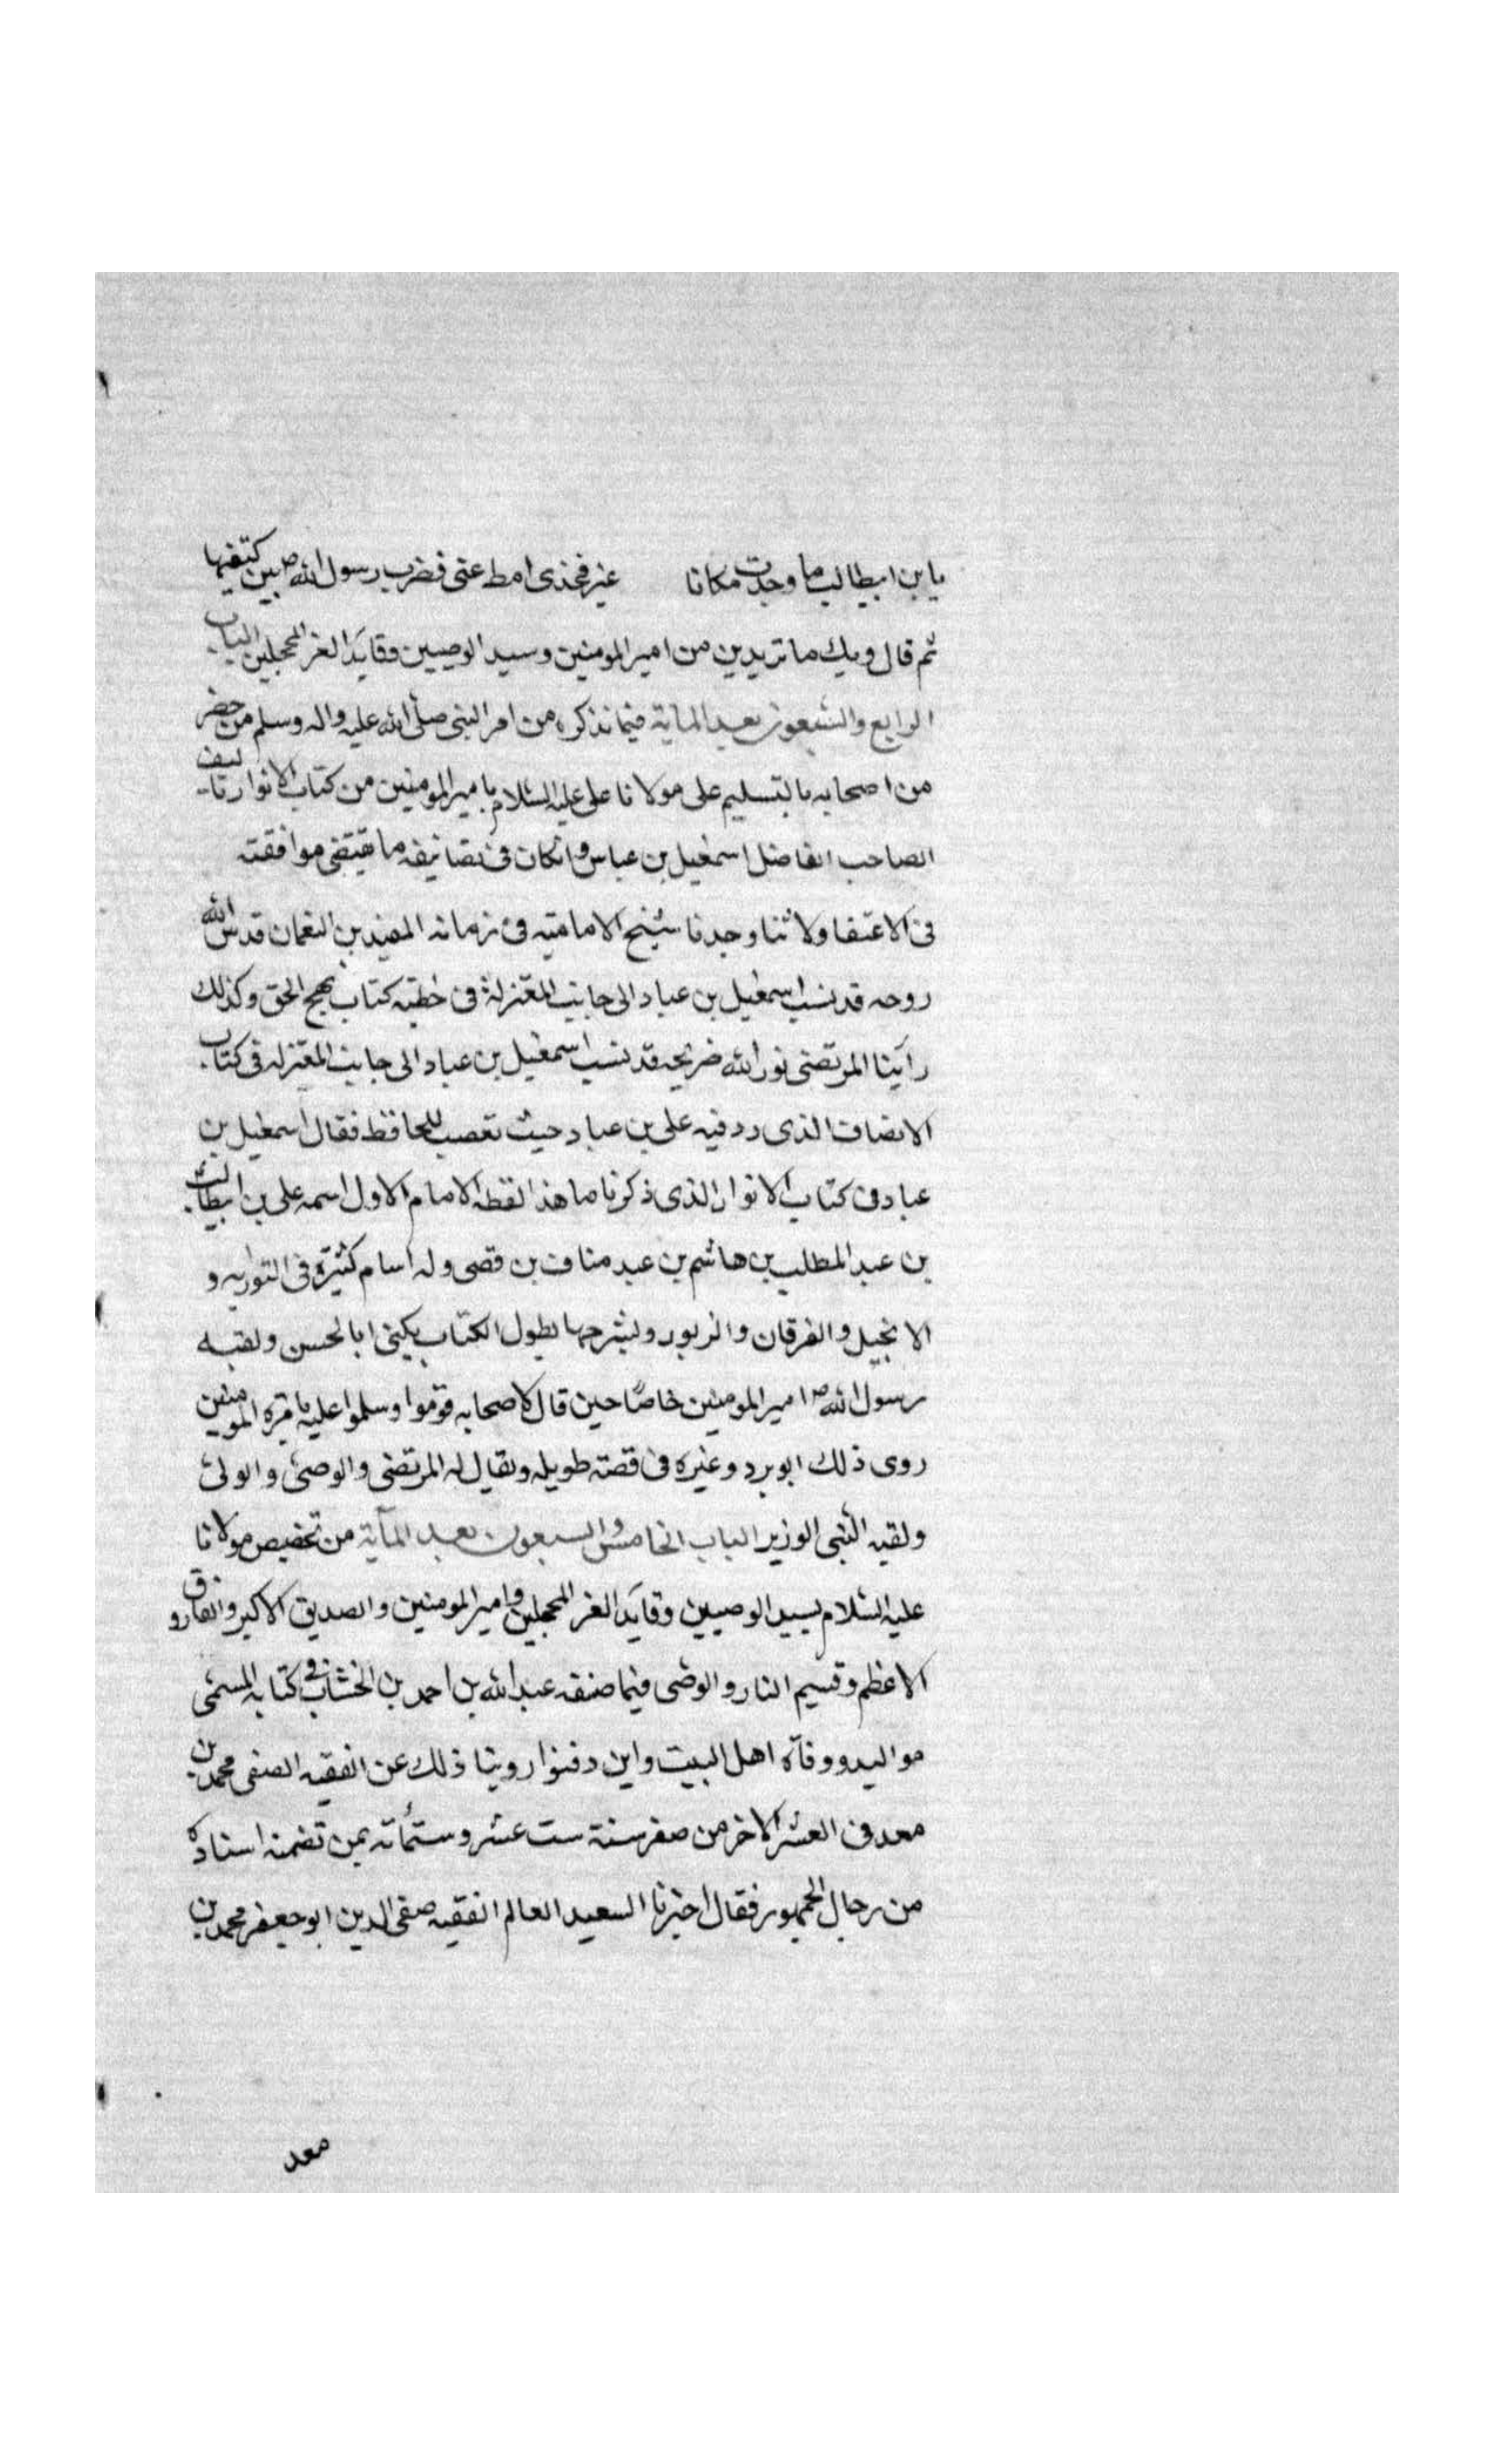 يا بن ابيطالب ما وجدت مكانا غير فخذى امط عنى فضرب رسول الله ص بين كتفيها
ثم قال ويك ما تريدين من امير المومنين وسيد الوصيين وقايد الغر المحجلين الباب
الرابع والسبعون بعد الماية فيما نذكره من امر النبى صلى الله عليه واله وسلم من حضر
من اصحابه بالتسليم على مولانا على عليه السلام بامير المومنين من كتاب الانوار تاليف
الصاحب الفاضل اسمعيل بن عباس وانكان فى تصانيفه ما يقتضى موافقته
فى الاعتفا ولاننا وجدنا شيخ الامامتيه فى زمانه المفيد بن النعمان قدس الله
روحه قد نسب اسمعيل بن عباد الى جانب المعتزلة فى خطبته كتاب نهج الحق وكذلك
راينا المرتضى نور الله ضريحه قد نسب اسمعيل بن عباد الى جانب المعتزله فى كتاب
الانصاف الذى رد فيه على بن عباد حيث تعصب للجاحظ فقال اسمعيل بن
عباد فى كتاب الانوار الذى ذكرنا ما هذا لفظه الامام الاول اسمه على بن ابيطالب
بن عبد المطلب بن هاشم بن عبد مناف بن قصى وله اسام كثيرة فى التوريه و
الانجيل والفرقان والزبور وبشرحها يطول الكتاب يكنى ابا الحسن ولقبه
رسول الله ص امير المومنين خاصا حين قال لاصحابه قوموا وسلموا عليه بامرة المومنين
روى ذلك ابو برد وغيره فى قصته طويله ويقال له المرتضى والوصى والولى
ولقبه النبى الوزير الباب الخامس والسبعون بعد المآية من تخصيص مولانا
عليه السلام بسيد الوصيين وقآيد الغر المحجلين وامير المومنين والصديق الاكبر والفاروق
الاعظم وقسيم النار والوصى فيما صنفه عبد الله بن احمد بن الخشاب فى كتابه المسمى
مواليد ووفآة اهل البيت واين دفنوا روينا ذلك عن الفقيه الصفى محمد بن
معد فى العشر الاخر من صفر سنة ست عشر وستمأته بمن تضمنه اسناده
من رجال الجمهور فقال اخبرنا السعيد العالم الفقيه صفى الدين ابو جعفر محمد بن
معد